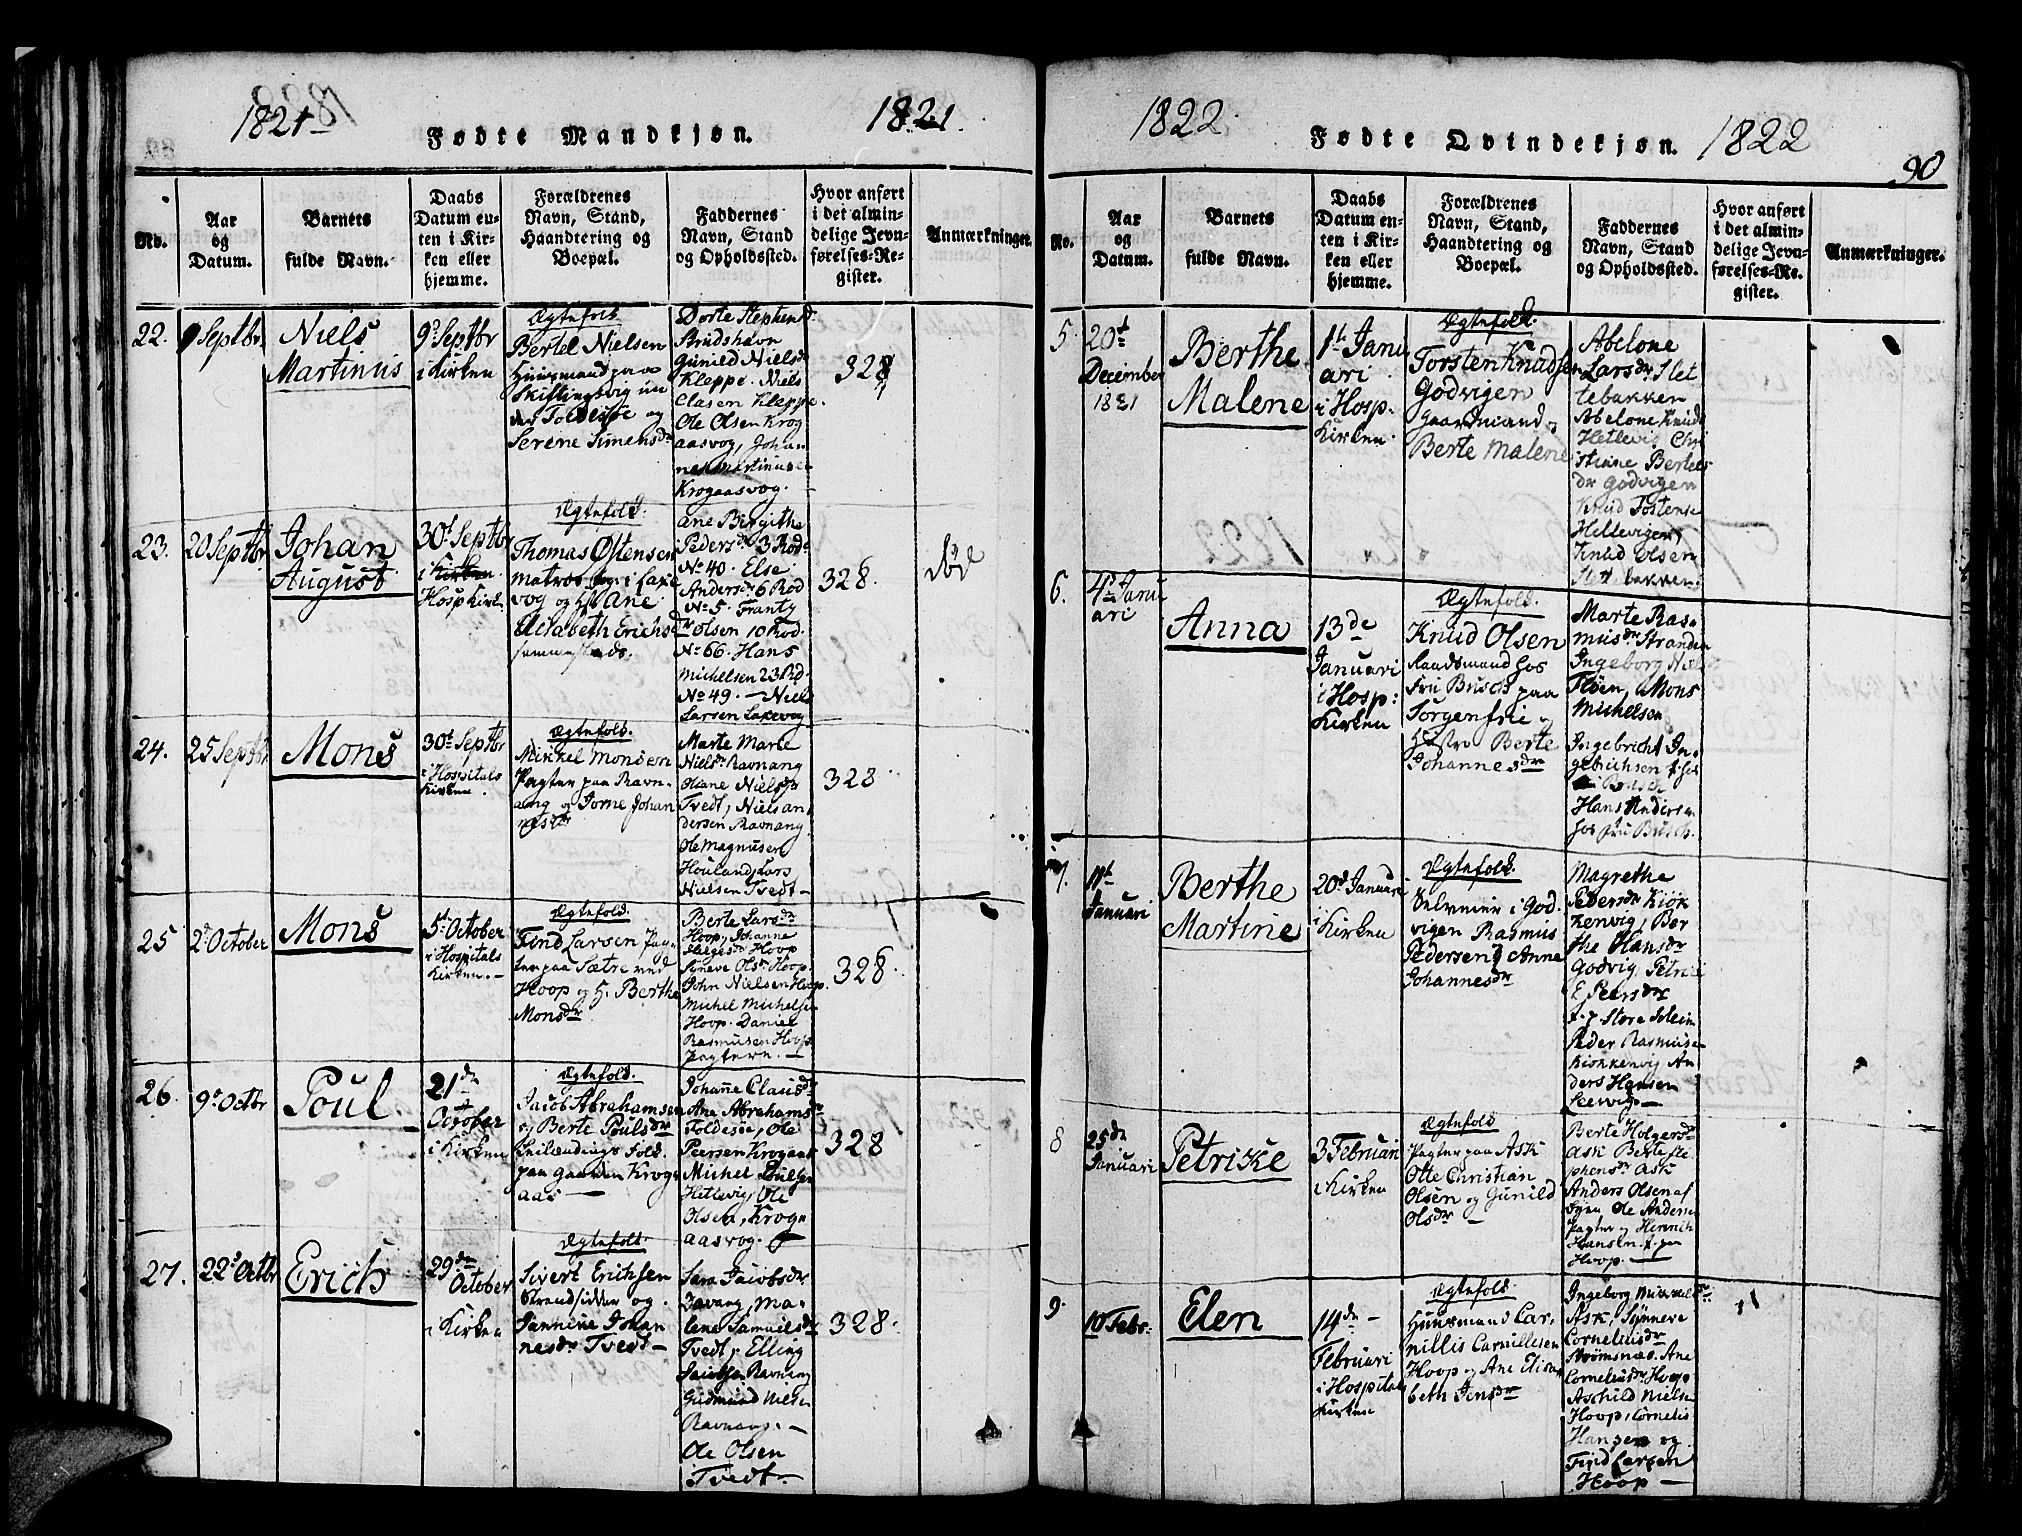 1821
Fødte Mandkjøn.
1821.
No.
Aar
og
Datum.
Barnets
fulde Navn.
Daabs
Datum en-
ten i Kir-
ken eller
hjemme.
Forældrenes
Navn, Stand,
Haandtering og
Boepæl.
Faddernes
Navn, Stand
og Opholdssted.
Hvor anført
i det almin-
delige Jevn-
førelses-Re-
gister.
Anmærkninger.
22.
9 Septbr.
Niels
Martinus
9d Septbr
i Kirken
Ægtefolk
Bertel Nielsen
Huusmand paa
Skiftingsvig un
der Toldesøe og
Serene Simensdr
Dorte Stephensd.
Bridshavn
Gunild Nielsdr
Kleppe. Niels
Clasen Kleppe.
Ole Olsen Krog
aasvog, Johan
nes Martinusen
Krogaasvog.
328
23.
20 Septbr
Johan
August
30t Septbr
i Kirken
Hosp Kirk.
Ægtefolk.
Thomas Ostensen
matros i Laxe
vog og H Ane
Elisabeth Erichsdr
sammesteds.
Ane Birgithe
Pedersdr 3 Rod
No 40. Else
Andersdr 6 Rod
No 5. Frantz
Olsen 10 Rod.
No 66. Hans
Michelsen 23 Rd.
No 49. - Niels
Larsen Laxevog
328.
død
24.
25 Septbr
Mons
30t Septbr
i Hospitals
Kirken.
Ægtefolk.
Mikkel Monsen
Pagter paa Ravn-
ang og Jorne Johan
nesdr
Marte Marie
Nielsdr Ravnang
Oliane Nielsdr
Tvedt, Niels An
dersen Ravnang.
Ole Magnusen
Houland, Lars
Nielsen Tvedt -
328
25
2d October
Mons
5t October
i Hospitals
Kirken. -
Ægtefold.
Find Larsen Pag-
ter paa Sætre ved
Hoop og H. Berthe
Monsdr
Berte Larsdr
Hoop, Johanne
Helgesdr Hoop
Syneve Olsdr Hoop.
John Nielsen Hoop.
Michel Michelsen
Hoop. Daniel
Rasmusen Hoop
Pagtern. -
328.
26.
9d Octbr
Poul.
21de
October
i Kirken
Ægtefold.
Jacob Abrahamsen
og Berte Poulsdr
paa Gaarden Krog
aas -
Johane Clausdr
Ane Abrahamsdr
Toldesøe, Ole
Peersen Krogaas
Michel
Hetlevig, Ole
Olsen, Krog
aasvog.
328
27.
22d Octbr
Erich
29de
October
i Kirken
Ægtefolk.
Sivert Erichsen
Strandsidder og
Jannine Johan
nesdr Tvedt -
Sara Jacobsdr
Ma-
lene Samuelsdr
Tvedt, Elling
Jacobsen Ravnang
Gudmund Nilsen
Ravnang. -
Ole Olsen
Tvedt -
328.
1822
Fødte Qvindekjøn.
1822
90
No.
Aar
og
Datum.
Barnets
fulde Navn.
Daabs
Datum en-
ten i Kir-
ken eller
hjemme.
Forældrenes
Navn, Stand,
Haandtering og
Boepæl.
Faddernes
Navn, Stand
og Opholdssted.
Hvor anført
i det almin-
delige Jevn-
førelses-Re-
gister.
Anmærkninger.
5.
20t
December
1821
Berthe
Malene
1t Janu
ari
i Hosp.
Kirken.
Ægtefolk.
Torsten Knudsen
Godvigen
Gaardmand,
Berte Malene
Abelone
Larsdr Slet
tebakken
Abelone Knudsdr
Hetlevig Chri
stiane Bertels
dr Godvigen
Knud Tostense
Hellevigen,
Knud Olsen
Slettebakken.
6.
4de Janu
ari
Anna
13de
Januari
i Hosp:
Kirken
Ægtefold.
Knud Olsen
Raadsmand hos
Fru Busch paa
Sorgenfrie og
Hustro Berte
Johannesdr
Marte Ras-
musdr Stranden
Ingeborg Niels
Fløen, Mons
Michelsen
Ingebricht In-
gebrichsen hos
Busch
Hans Andersen
hos fru Busch.
7.
11t
Januari
Berthe
Martine
20d Januari
i Kirken
Ægtefolk.
Selveiier i God
vigen Rasmus
Pedersen og Anne
Johannesdr
Magrethe
Pedersdr Kiøk
kenvig, Ber
the Hansdr
Godvig, Petri
E Peersdr
Store
Peder Rasmusen
Kiøkkenvig An
ders Hansen
Leervig -
8
25de
Januari
Petrike
3 Februari
i Kirken
Ægtefold
Pagter paa Ask
Otte Christian
Olsen og Gunild
Olsdr -
Berte Holgersdr
Ask Berte Ste
phensdr Ask
Anders Olsen af
Ole Andersen
Pagter og Henrich
Hansen paa
Hoop. -
9.
10 Febr:
Elen
14de -
Februari
i Hospitals
Kirken
Ægtefold
Huusmand Cor,
nillis Cornillesen
Hoop og Ane Elisa
beth Jensdr
Ingeborg Mikkelsdr
Ask, Synneve
Corneliusdr
Strømsnæs. Ane
Corneliusdr Hoop
Aschild Nielsen
Hoop, Cornelis
Hansen og
Find Larsen
Hoop -